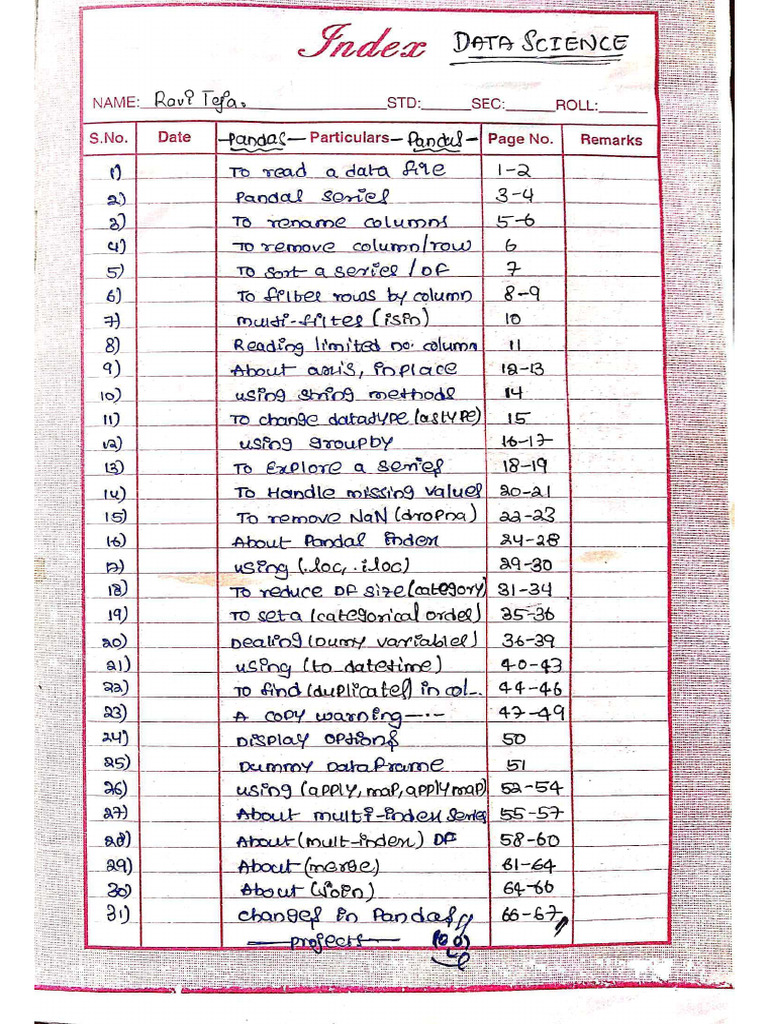 Index DATA SCIENCE
NAME: Ravi Teja. STD: SEC: ROLL:
S.No. Date -Pandas- Particulars -Pandas- Page No. Remarks
1) To read a data file 1-2
2) Pandas series 3-4
3) To rename columns 5-6
4) To remove column/row 6
5) To sort a series / DF 7
6) To filter rows by column 8-9
7) multi-filter (isin) 10
8) Reading limited no. column 11
9) About axis, inplace 12-13
10) using string methods 14
11) To change datatype (astype) 15
12) using groupby 16-17
13) To Explore a series 18-19
14) To Handle missing values 20-21
15) To remove NaN (dropna) 22-23
16) About Pandas index 24-28
17) using (.loc, .iloc) 29-30
18) To reduce DF size (category) 31-34
19) To set a (categorical order) 35-36
20) Dealing (Dumy variables) 36-39
21) using (to datetime) 40-43
22) To find (duplicates) in col-. 44-46
23) A copy warning--.- 47-49
24) Display options 50
25) Dummy Dataframe 51
26) using (apply, map, applymap) 52-54
27) About multi-index series 55-57
28) About (mult-index) DF 58-60
29) About (merge) 61-64
30) About (join) 64-66
31) changes in Pandas 66-67
projects